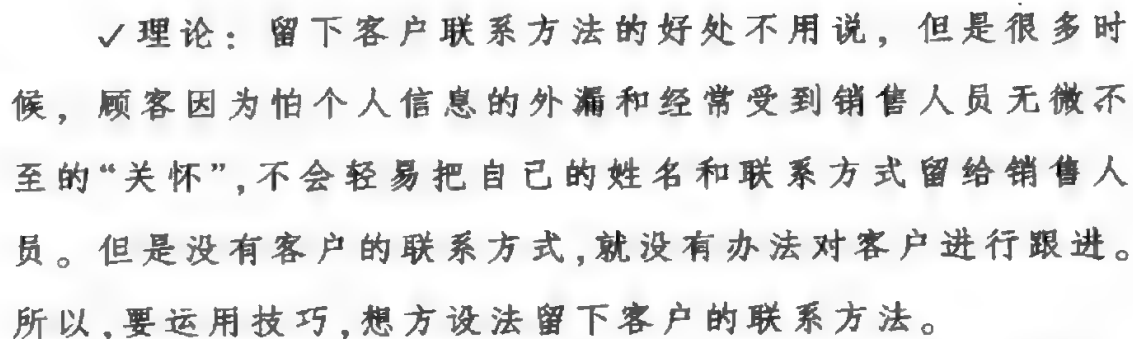 ✓理论：留下客户联系方法的好处不用说，但是很多时
候，顾客因为怕个人信息的外漏和经常受到销售人员无微不
至的“关怀”,不会轻易把自己的姓名和联系方式留给销售人
员。但是没有客户的联系方式,就没有办法对客户进行跟进。
所以,要运用技巧,想方设法留下客户的联系方法。